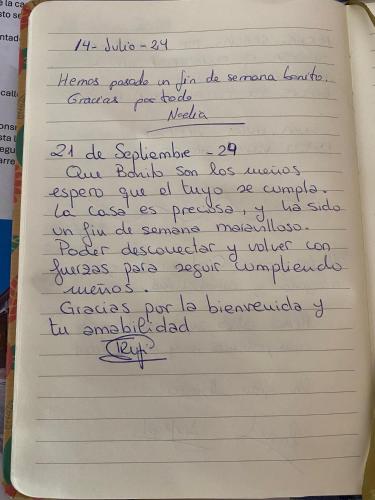 14- Julio - 24
Hemos pasado un fin de semana bonito.
Gracias por todo
Noelia
21 de Septiembre - 24
Que Bonito son los sueños
espero que el tuyo se cumpla.
La casa es preciosa, y ha sido
un fin de semana maravilloso.
Poder desconectar y volver con
fuerzas para seguir cumpliendo
sueños.
Gracias por la bienvenida y
tu amabilidad